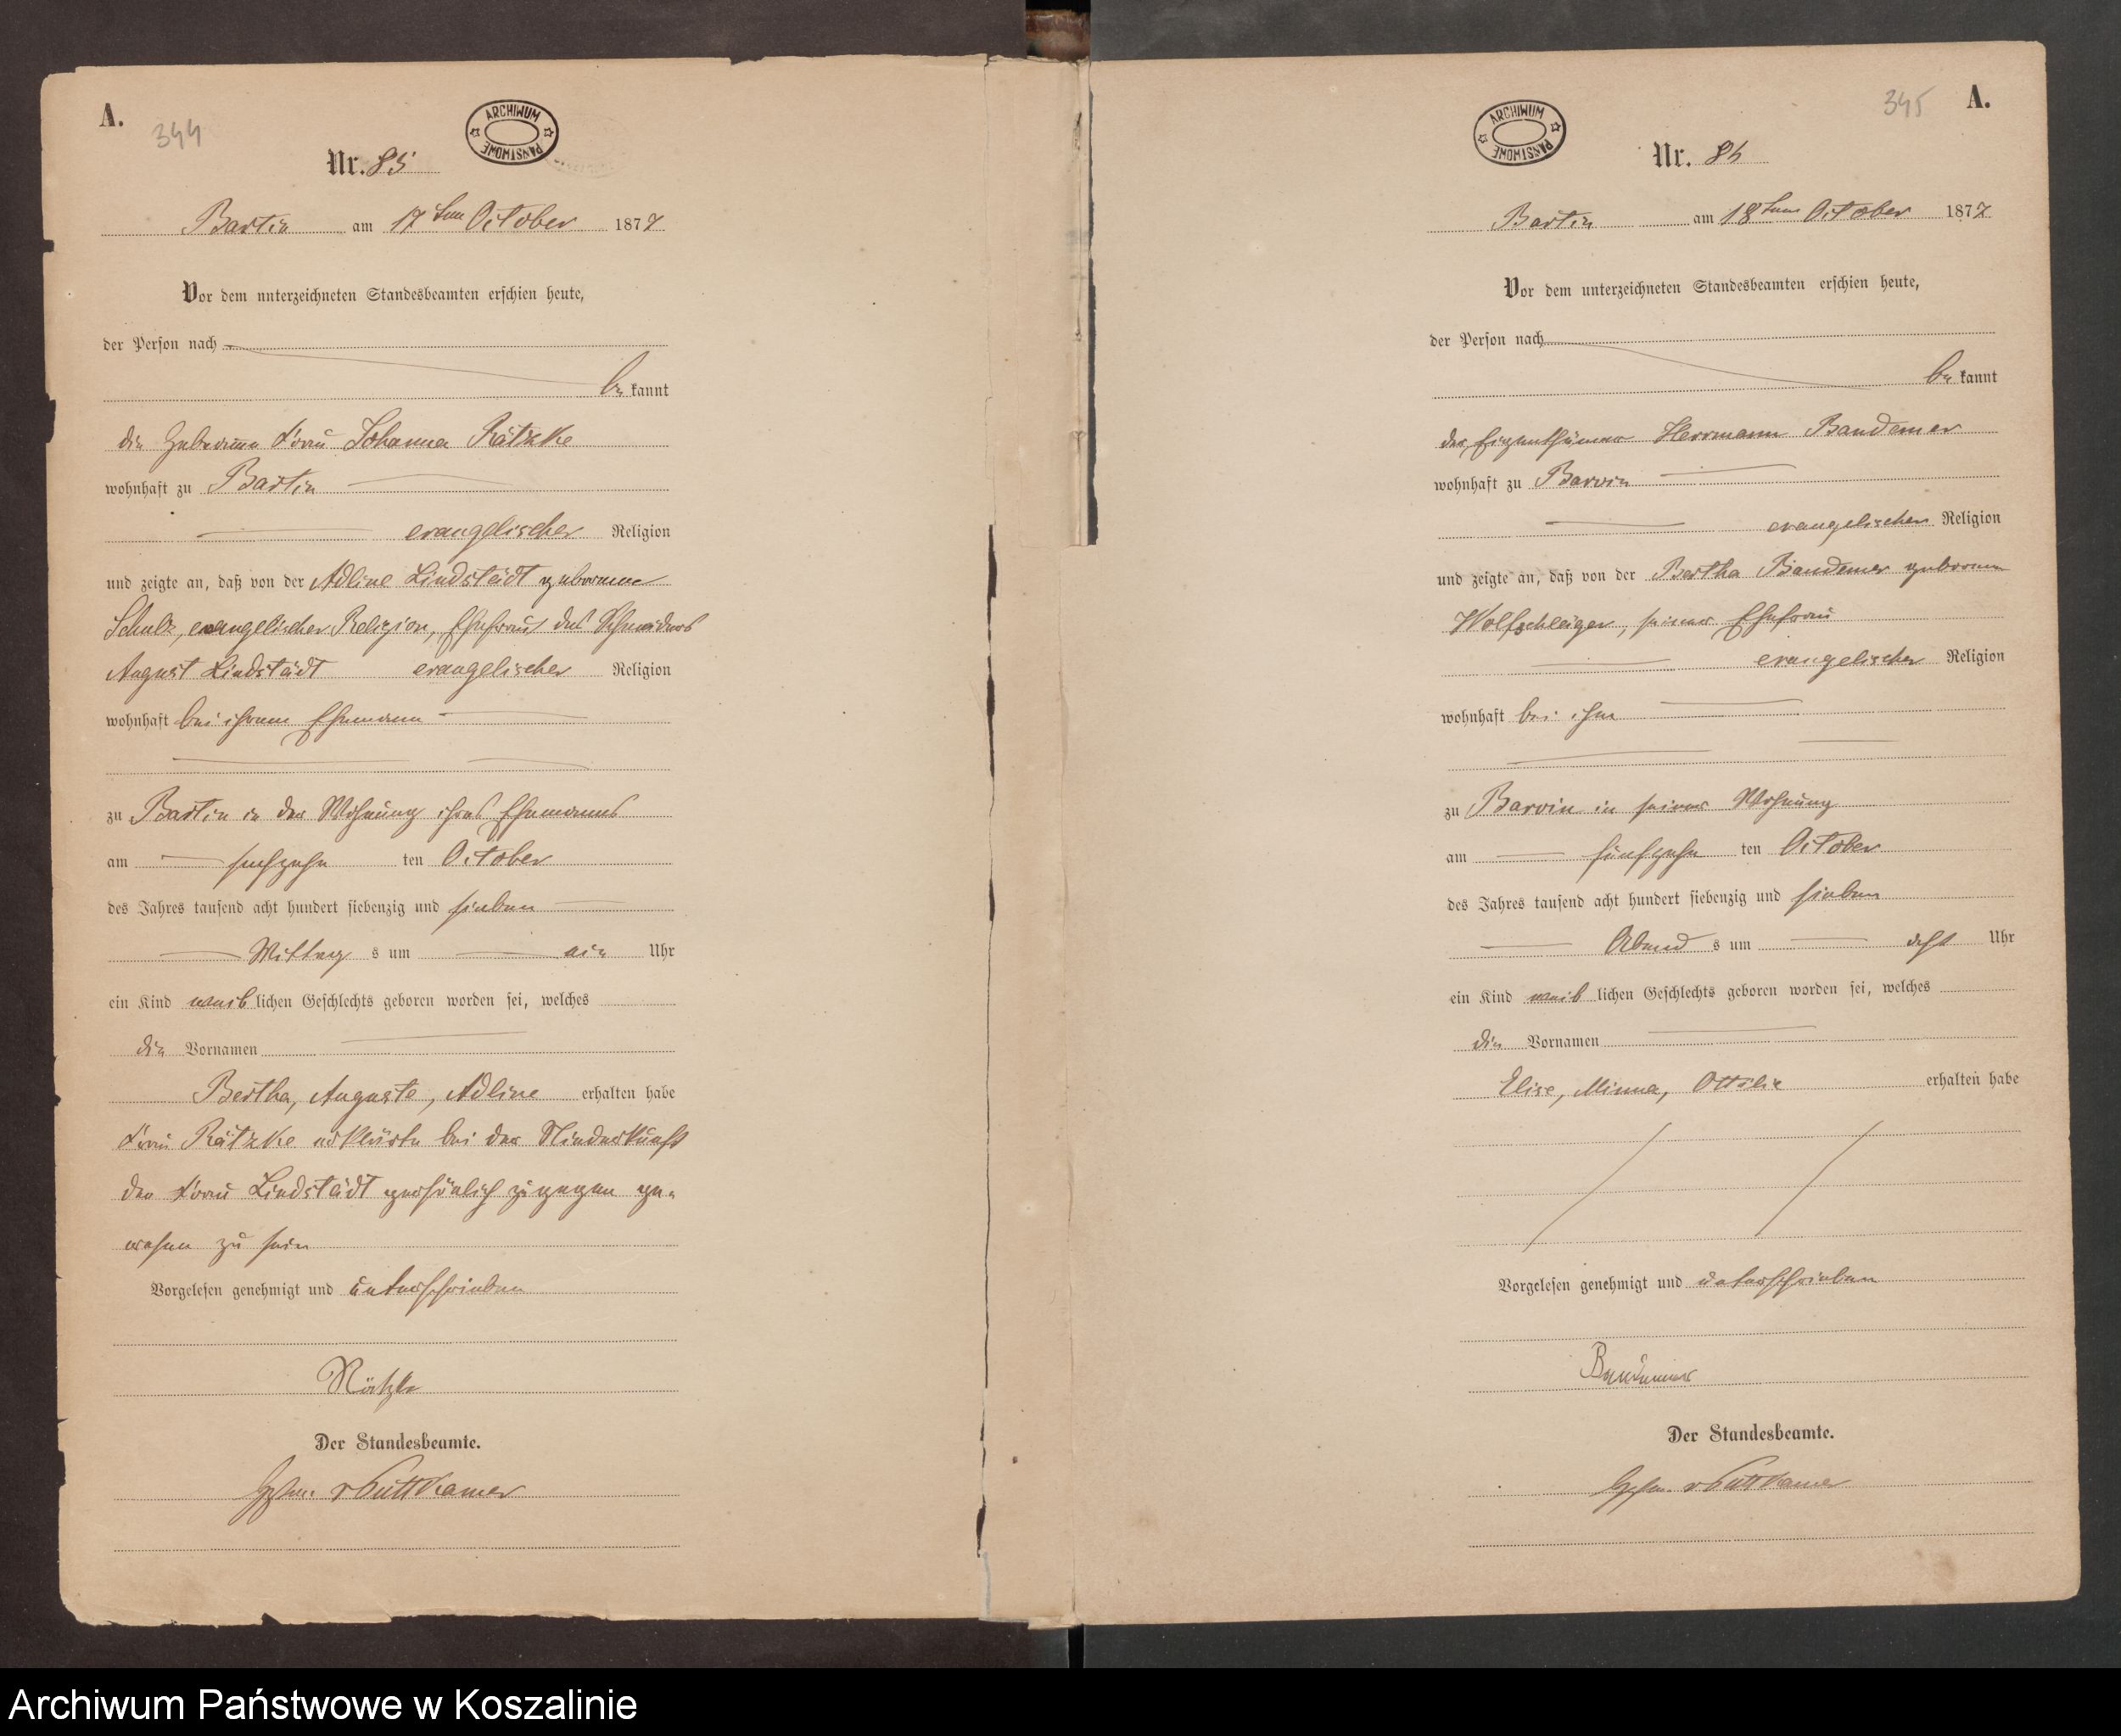 A.
344
ARCHIWUM PAŃSTWOWE
Nr. 85
Bartin am 17ten October 1877
Vor dem unterzeichneten Standesbeamten erschien heute,
der Person nach
be kannt
die Hebamme Frau Johanna Rätzke
wohnhaft zu Bartin
evangelischer Religion
und zeigte an, daß von der Adline Lindstädt geborene
Schulz, evangelischer Religion, Ehefrau des Schneiders
August Lindstädt evangelischer Religion
wohnhaft bei ihrem Ehemann
zu Bartin in der Wohnung ihres Ehemannes
am sechzehn ten October
des Jahres tausend acht hundert siebenzig und sieben
Mittag s um ein Uhr
ein Kind weib lichen Geschlechts geboren worden sei, welches
die Vornamen
Bertha, Auguste, Adline erhalten habe
Frau Rätzke erklärte bei der Niederkunft
der Frau Lindstädt persönlich zugegen ge-
wesen zu sein
Vorgelesen genehmigt und unterschrieben
Rätzke
Der Standesbeamte.
vPuttkamer
345
A.
ARCHIWUM PAŃSTWOWE
Nr. 86
Bartin am 18ten October 1877
Vor dem unterzeichneten Standesbeamten erschien heute,
der Person nach
be kannt
der Eigenthümer Herrmann Bandemer
wohnhaft zu Barvin
evangelischer Religion
und zeigte an, daß von der Bertha Bandemer geborene
Wolfschleiger, seiner Ehefrau
evangelischer Religion
wohnhaft bei ihm
zu Barvin in seiner Wohnung
am fünfzehn ten October
des Jahres tausend acht hundert siebenzig und sieben
Abend s um acht Uhr
ein Kind weib lichen Geschlechts geboren worden sei, welches
die Vornamen
Elise, Minna, Ottilie erhalten habe
Vorgelesen genehmigt und unterschrieben
Bandemer
Der Standesbeamte.
vPuttkamer
Archiwum Państwowe w Koszalinie